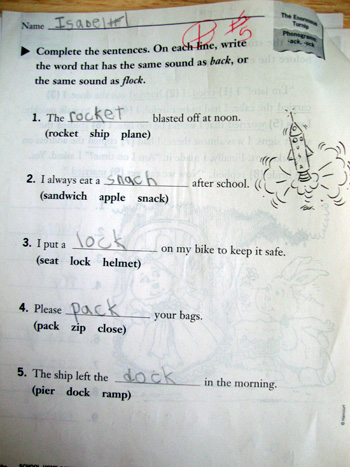 The Enormous
Turnip
Phonograms
-ack, -ock
Name Isabel
Complete the sentences. On each line, write
the word that has the same sound as back, or
the same sound as flock.
1. The rocket blasted off at noon.
(rocket ship plane)
2. I always eat a snack after school.
(sandwich apple snack)
3. I put a lock on my bike to keep it safe.
(seat lock helmet)
4. Please pack your bags.
(pack zip close)
5. The ship left the dock in the morning.
(pier dock ramp)
© Harcourt